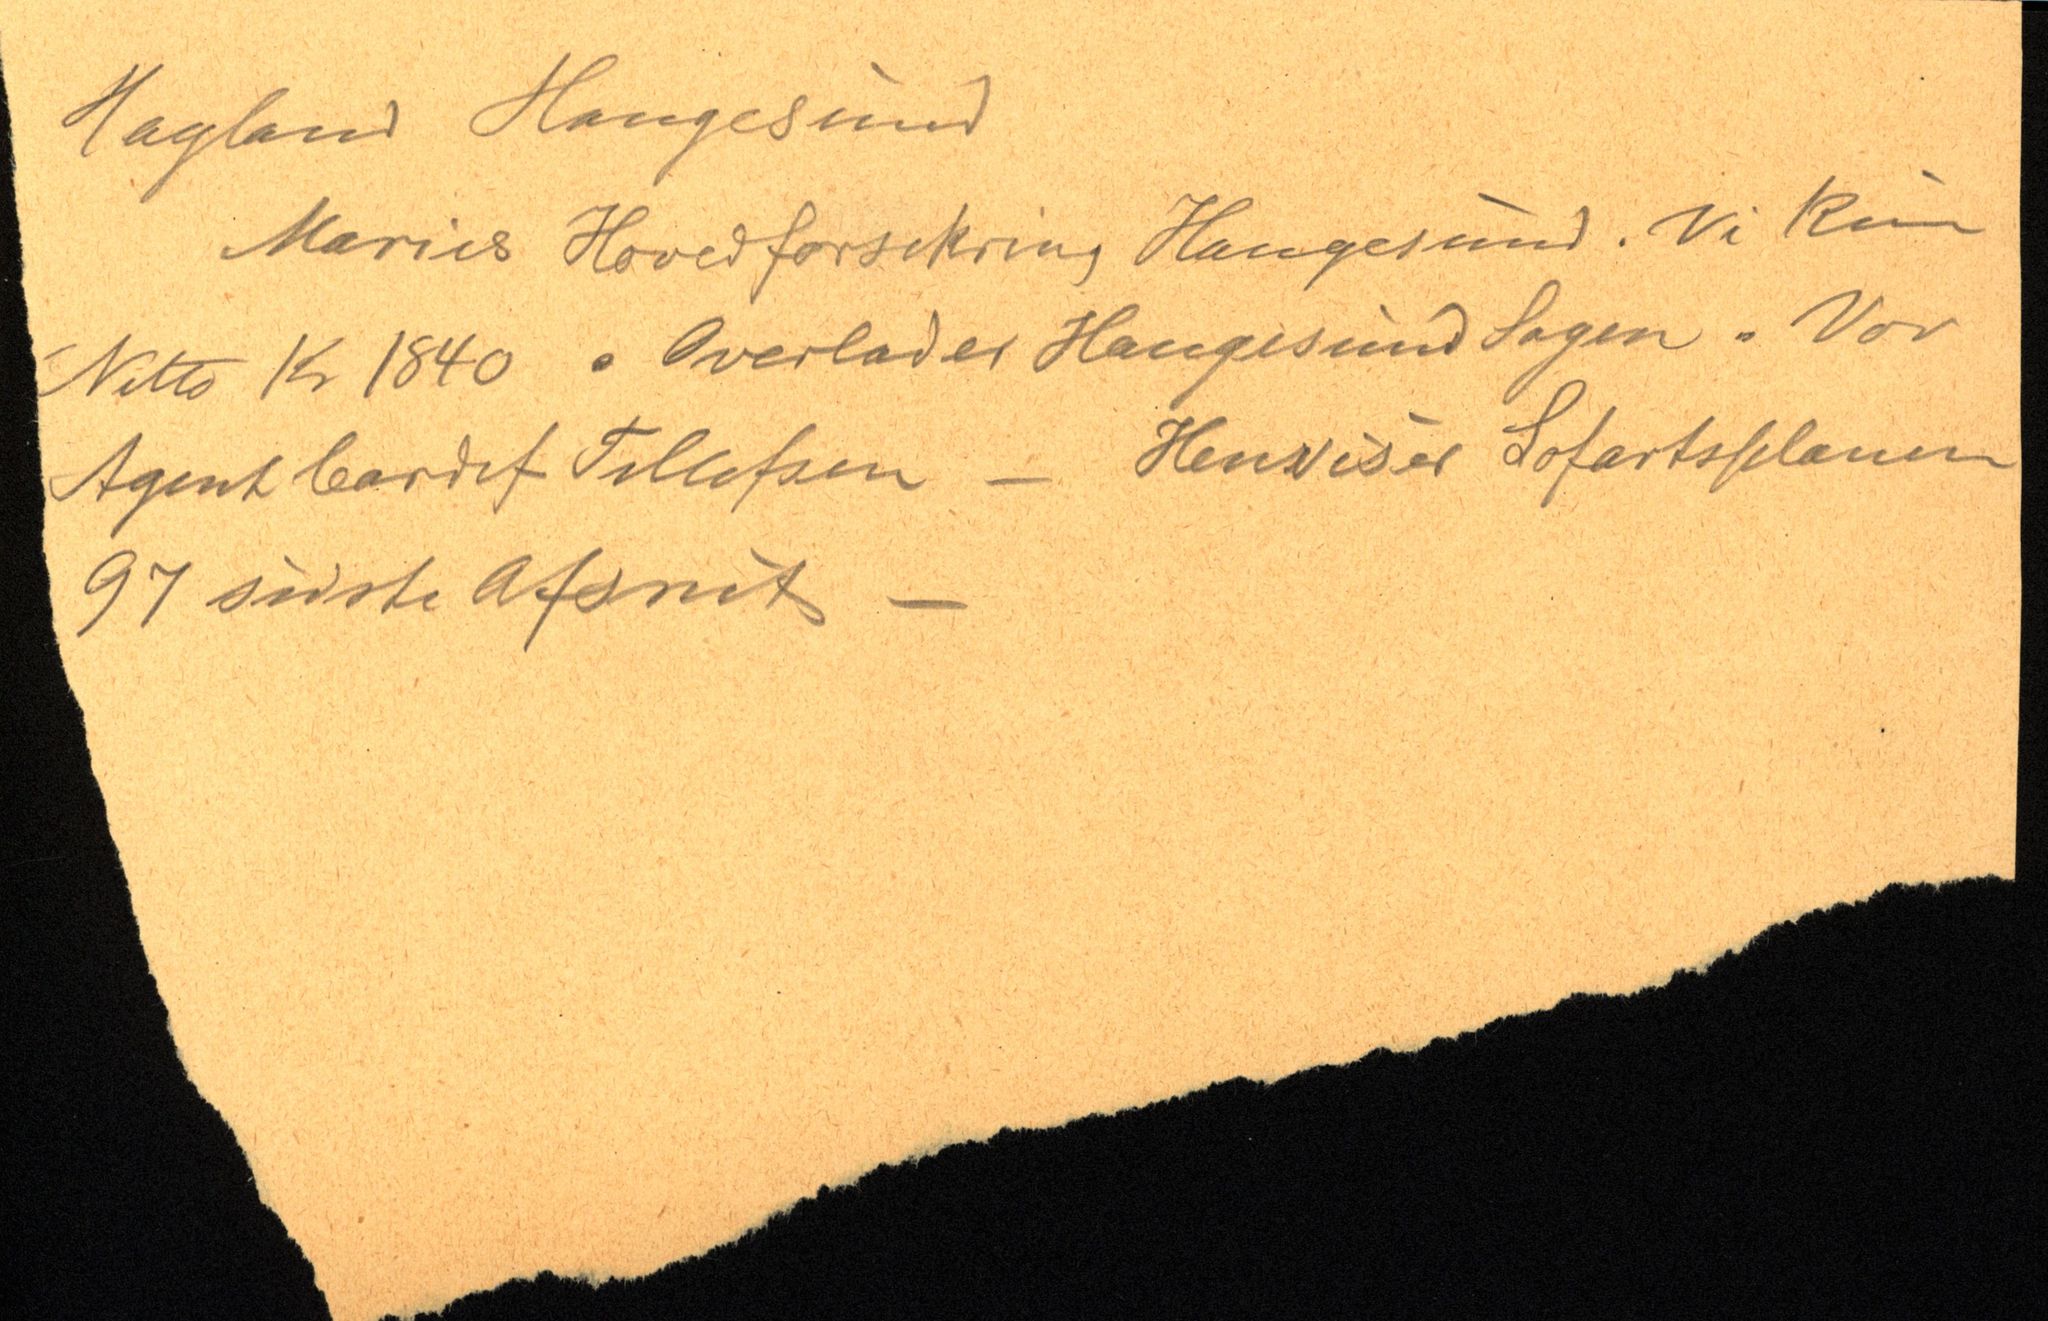 Hagland Haugesund
Maries Hovedforsikring Haugesund. Vi kun
Netto Kr 1840 . Overlader Haugesund Sagen . Vor
Agent Cardif Tellefsen — Henviser Sofartsplanen
97 sidste Afsnit —